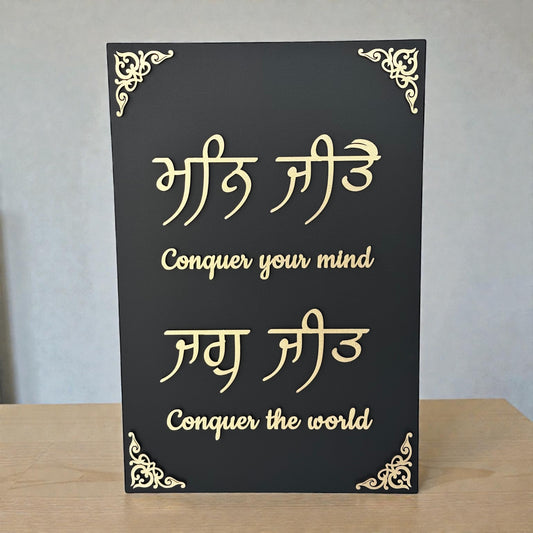 ਮਨਿ ਜੀਤੈ
Conquer your mind
ਜਗੁ ਜੀਤ
Conquer the world